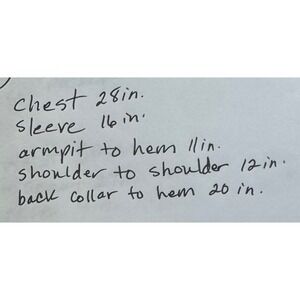 chest 28in.
sleeve 16 in.
armpit to hem 11in.
shoulder to shoulder 12in.
back collar to hem 20 in.